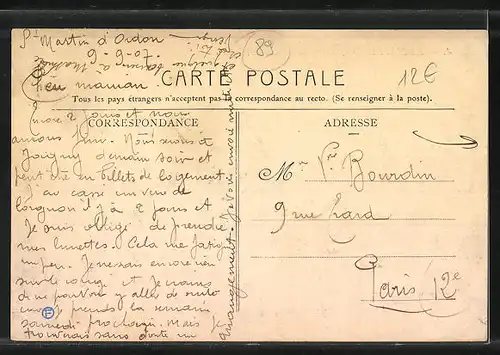 St Martin d'Ordon
9-9-07.
89
12€
CARTE POSTALE
Tous les pays étrangers n'acceptent pas la correspondance au recto. (Se renseigner à la poste.)
CORRESPONDANCE
ADRESSE
maman
Encore 2 jours et nous
aurons fini. Nous serons à
Joigny demain soir et
peut être en billets de logement.
J'ai cassé un verre de
lorgnon il y a 2 jours et
Je suis obligé de prendre
mes lunettes. Cela me fatigue
un peu. Je ne sais encore rien
sur le congé et Je crains
de ne pouvoir y aller de suite
prends la semaine
samedi prochain. Mais Je
trouverais sans doute un
arrangement. Je vous
Mr Vr Bourdin
9 rue
Paris 12e